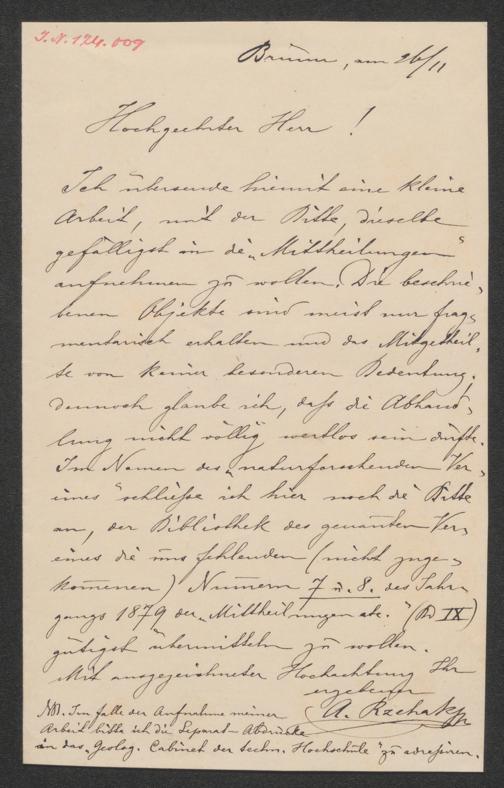 I.N. 124.009
Brünn, am 26/11
Hochgeehrter Herr!
Ich übersende hiemit eine kleine
Arbeit, mit der Bitte, dieselbe
gefälligst in die „Mittheilungen“
aufnehmen zu wollen. Die beschrie-
benen Objekte sind meist nur frag-
mentarisch erhalten und das Mitgetheil-
te von keiner besonderen Bedeutung;
dennoch glaube ich, daß die Abhand-
lung nicht völlig wertlos sein dürfte.
Im Namen des „naturforschenden Ver-
eines“ schließe ich hier noch die Bitte
an, der Bibliothek des genannten Ver-
eines die uns fehlenden (nicht zuge-
kom̅enen) Num̅ern 7 u. 8. des Jahr-
gangs 1879 der „Mittheilungen etc.“ (Bd IX)
gütigst übermitteln zu wollen.
Mit ausgezeichneter Hochachtung Ihr
ergebener
A. Rzehak
NB. Im falle der Aufnahme meiner
Arbeit bitte ich die Separat-Abdrücke
an das „Geolog. Cabinet der techn. Hochschule“ zu adressiren.